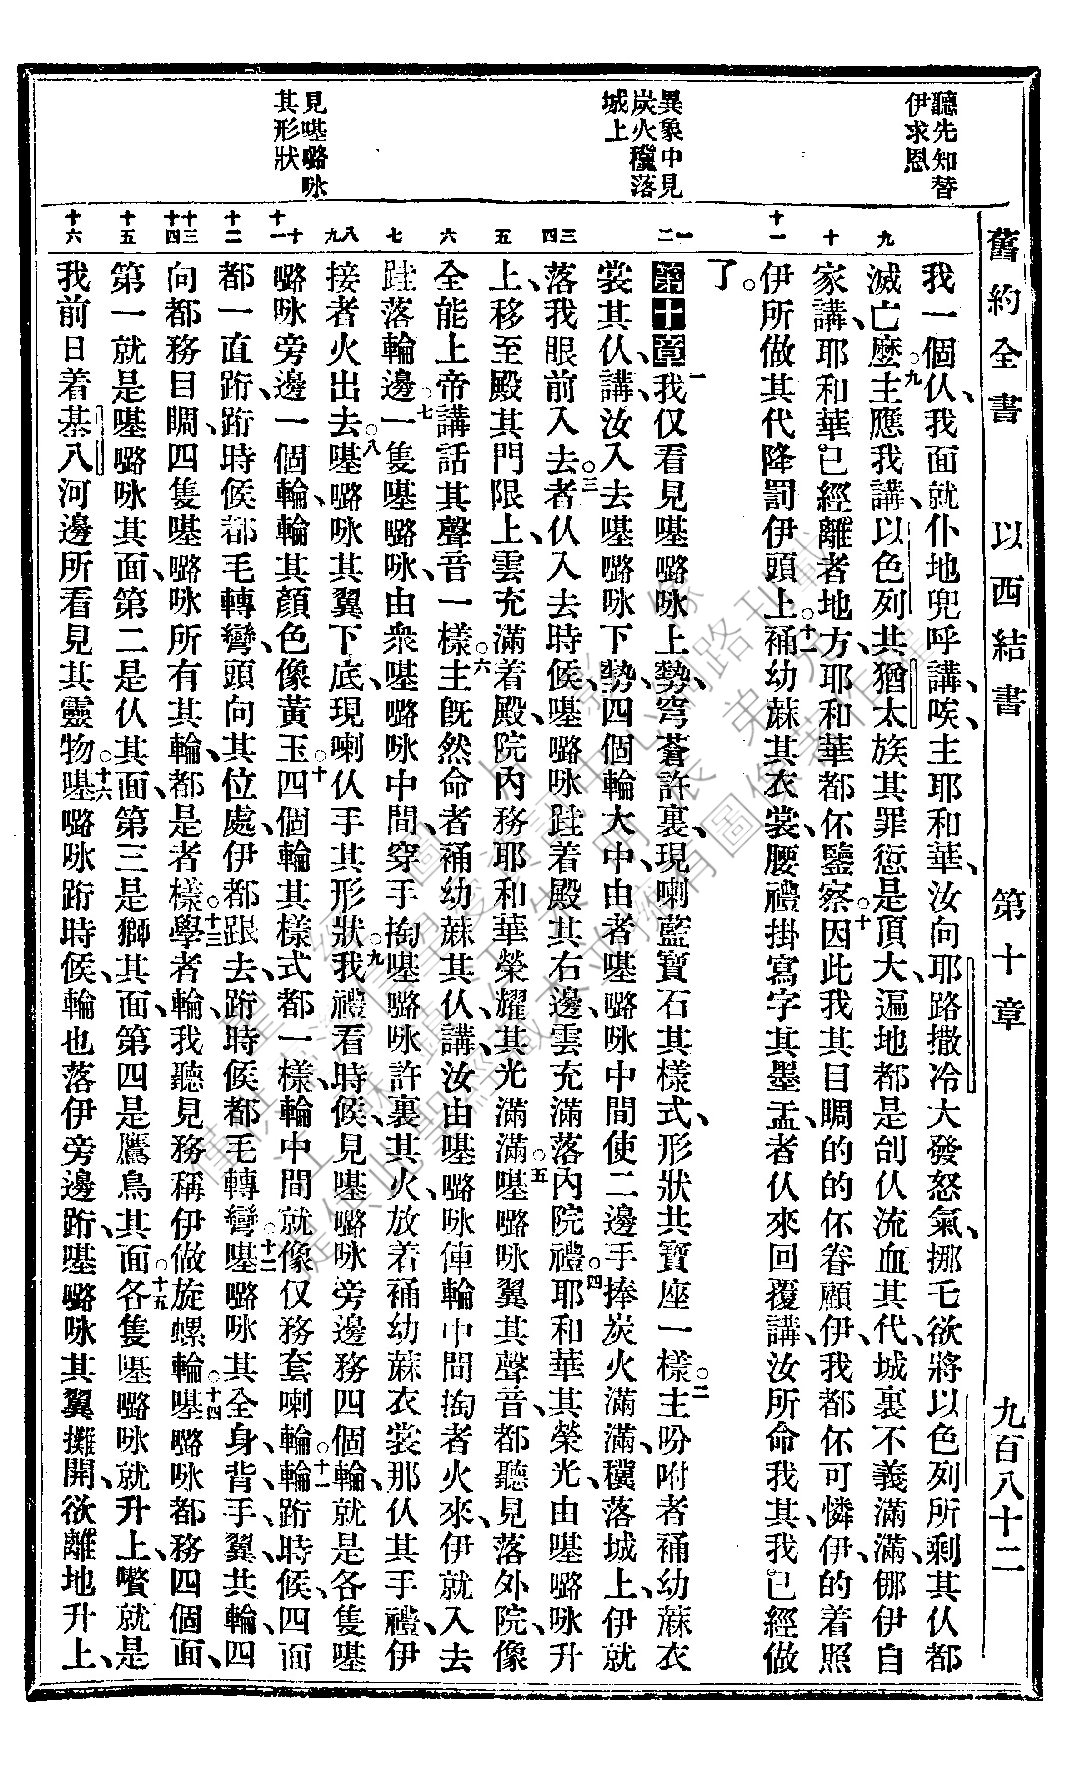 舊約全書 以西結書 第十章 九百八十二
聽先知替
伊求恩
異象中見
炭火穰落
城上
見𠼻嚕㖠
其形狀
九
十
十一
一
二
三
四
五
六
七
八
九
十
十一
十二
十三
十四
十五
十六
我一個伩、我面就仆地兜呼講、唉、主耶和華、汝向耶路撒冷大發怒氣、挪乇欲將以色列所剩其伩都
滅亡麼。九主應我講、以色列共猶太族其罪愆是頂大、遍地都是刣伩流血其代、城裏不義滿滿、㑚伊自
家講、耶和華已經離者地方、耶和華都伓鑒察。十因此我其目睭的的伓眷顧伊、我都伓可憐伊、的着照
伊所做其代降罰伊頭上。十一䘵幼蔴其衣裳、腰禮掛寫字其墨盂者伩來回覆講、汝所命我其、我已經做
了。
第十章一我仅看見𠼻嚕㖠上勢、穹蒼許裏、現喇藍寶石其樣式、形狀共寶座一樣。二主吩咐者䘵幼蔴衣
裳其伩、講、汝入去𠼻嚕㖠下勢、四個輪大中、由者𠼻嚕㖠中間、使二邊手捧炭火滿滿、穰落城上、伊就
落我眼前入去。三者伩入去時候、𠼻嚕㖠跓着殿其右邊、雲充滿落內院禮。四耶和華其榮光、由𠼻嚕㖠升
上、移至殿其門限上、雲充滿着殿、院內務耶和華榮耀、其光滿滿。五𠼻嚕㖠翼其聲音、都聽見落外院、像
全能上帝講話其聲音一樣。六主旣然命者䘵幼蔴其伩、講、汝由𠼻嚕㖠俥輪中間掏者火來、伊就入去、
跓落輪邊。七一隻𠼻嚕㖠、由衆𠼻嚕㖠中間、穿手掏𠼻嚕㖠許裏其火、放若䘵幼蔴衣裳、那伩其手禮、伊
接者火出去。八𠼻嚕㖠其翼下底、現喇伩手其形狀。九我禮看時候、見𠼻嚕㖠旁邊務四個輪、就是各隻𠼻
嚕㖠旁邊一個輪、輪其顏色像黃玉。十四個輪其樣式都一樣、輪中間就像仅務套喇輪。十一輪跭時候、四面
都一直跭、跭時候都毛轉彎、頭向其位處、伊都跟去、跭時候都毛轉彎。十二𠼻嚕㖠其全身、背、手、翼、共輪、四
向都務目睭、四隻𠼻嚕㖠所有其輪、都是者樣。十三學者輪、我聽見務稱伊做旋螺輪。十四𠼻嚕㖠都務四個面、
第一就是𠼻嚕㖠其面、第二是伩其面、第三是獅其面、第四是鷹鳥其面。十五各隻𠼻嚕㖠就升上、嚽就是
我前日着基八河邊所看見其靈物。十六𠼻嚕㖠跭時候、輪也落伊旁邊跭、𠼻嚕㖠其翼攤開、欲離地升上、